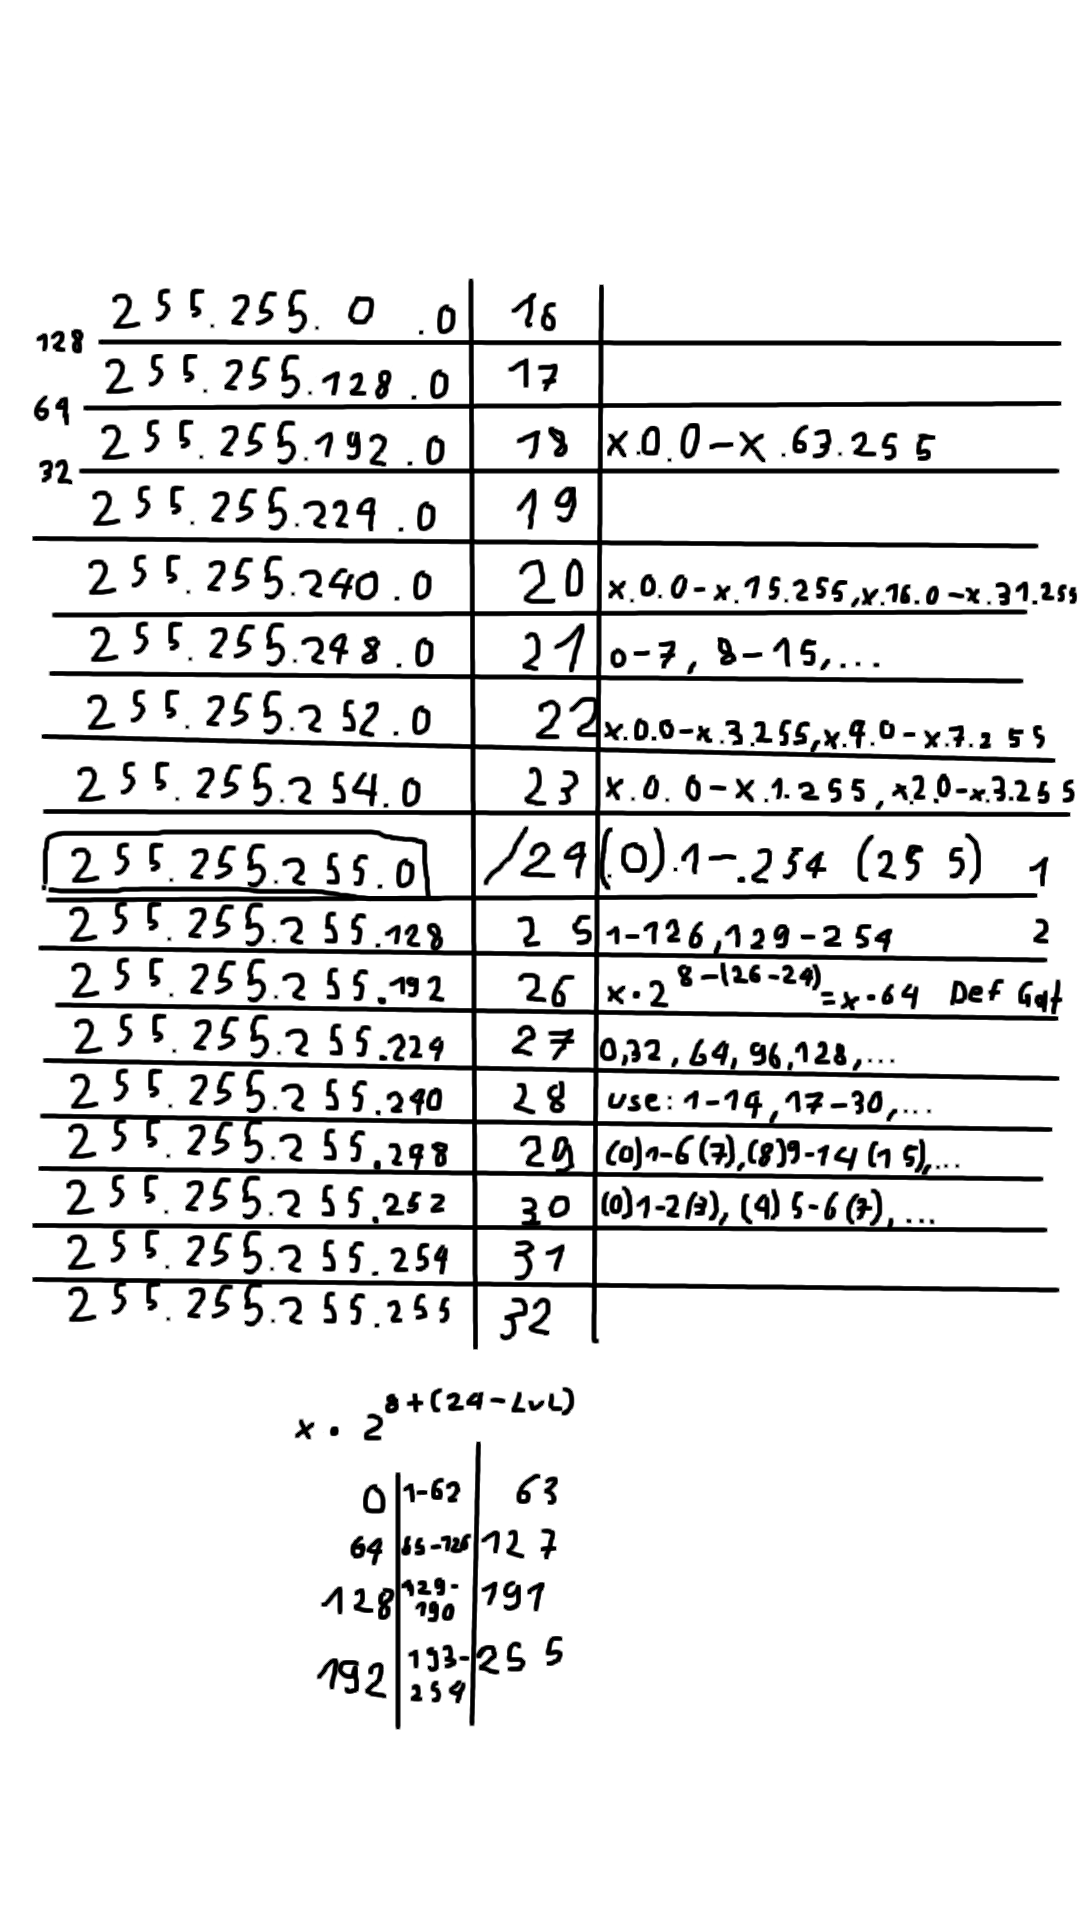 255.255.0.0 16
128
255.255.128.0 17
64
255.255.192.0 18 x.0.0-x.63.255
32
255.255.224.0 19
255.255.240.0 20 x.0.0-x.15.255,x.16.0-x.31.255
255.255.248.0 21 0-7, 8-15,...
255.255.252.0 22 x.0.0-x.3.255,x.4.0-x.7.255
255.255.254.0 23 x.0.0-x.1.255,x2.0-x.3.255
255.255.255.0 /24 (.0).1-.254 (255) 1
255.255.255.128 25 1-126,129-254 2
255.255.255.192 26 x·2^8-(26-24)=x·64 Def Gat
255.255.255.224 27 0,32,64,96,128,...
255.255.255.240 28 use: 1-14,17-30,...
255.255.255.248 29 (0)1-6(7),(8)9-14(15),...
255.255.255.252 30 (0)1-2(3),(4)5-6(7),...
255.255.255.254 31
255.255.255.255 32
x·2^8+(24-LvL)
0 1-62 63
64 65-126 127
128 129-190 191
192 193-254 255